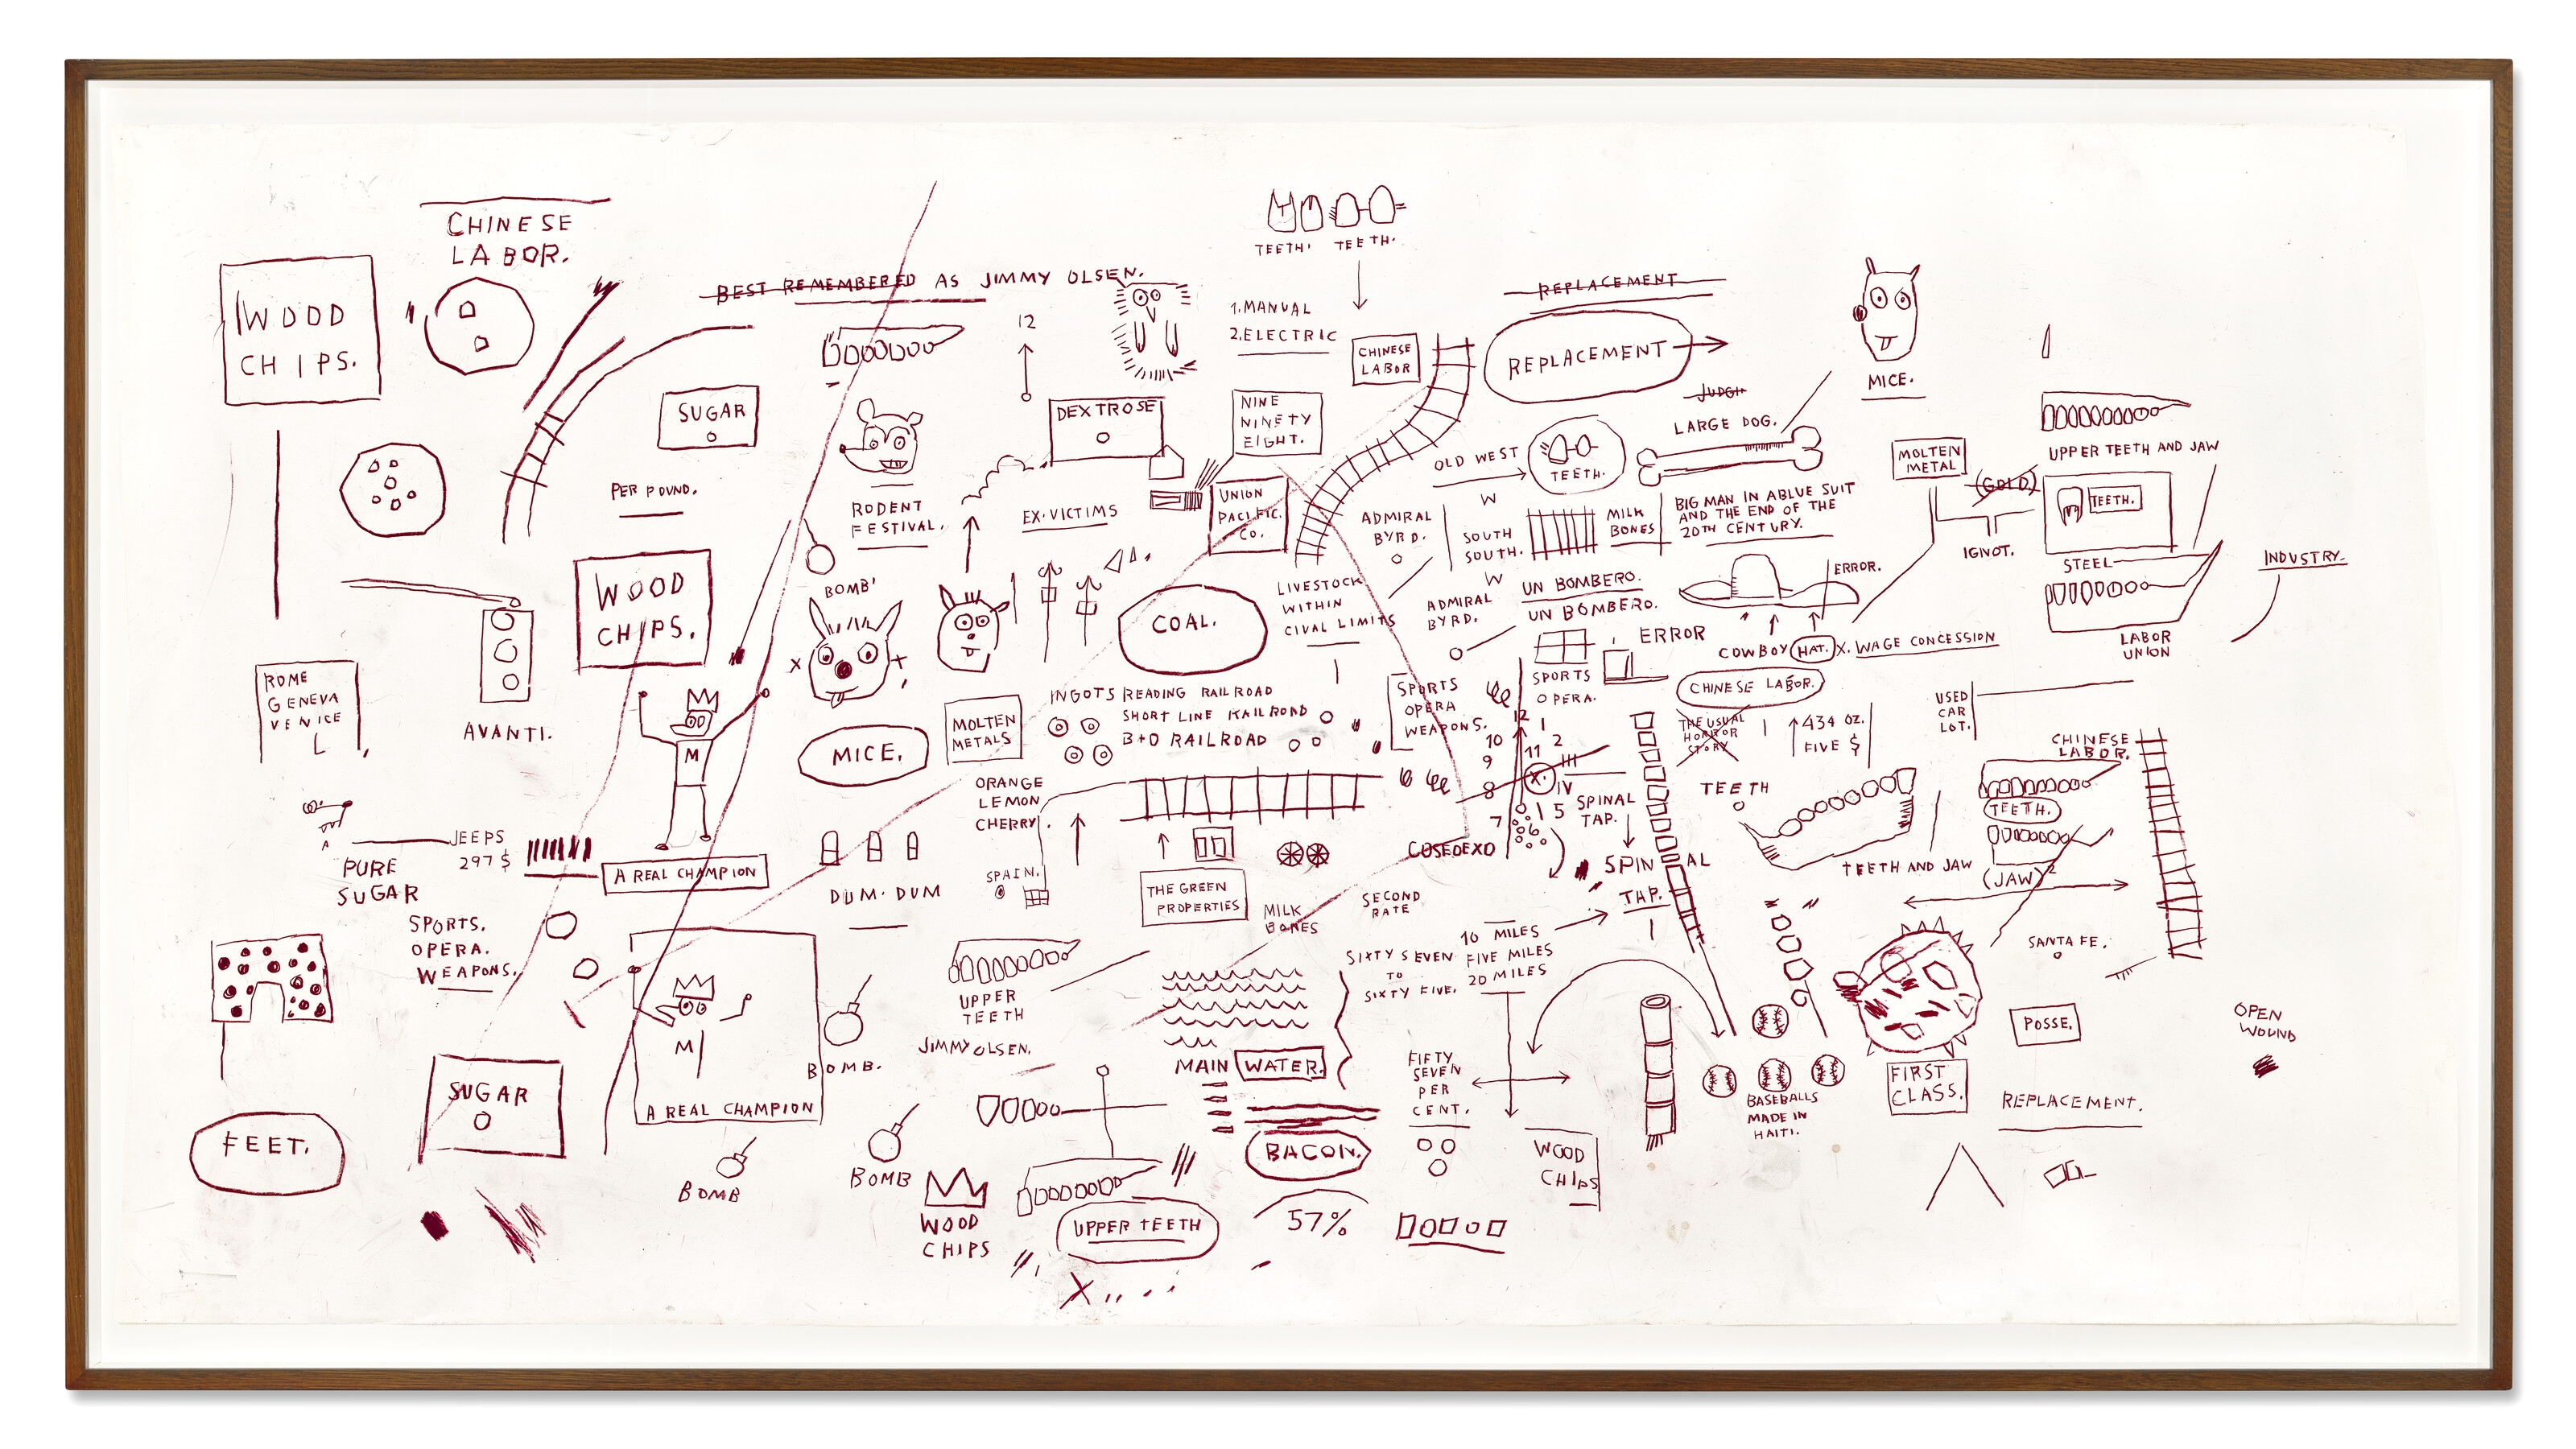 CHINESE
LABOR.
WOOD
CHIPS.
BEST REMEMBERED AS JIMMY OLSEN.
TEETH. TEETH.
1. MANUAL
2. ELECTRIC
12
CHINESE
LABOR
REPLACEMENT
REPLACEMENT
MICE.
SUGAR
PER POUND.
RODENT
FESTIVAL.
DEXTROSE
NINE
NINETY
EIGHT.
EX-VICTIMS
UNION
PACIFIC.
CO.
OLD WEST
TEETH.
LARGE DOG.
W
ADMIRAL
BYRD.
SOUTH
SOUTH.
W
MILK
BONES
BIG MAN IN ABLUE SUIT
AND THE END OF THE
20TH CENTURY.
MOLTEN
METAL
(GOLD)
IGNOT.
UPPER TEETH AND JAW
TEETH.
STEEL
INDUSTRY.
LABOR
UNION
WOOD
CHIPS.
BOMB'
COAL.
LIVESTOCK
WITHIN
CIVAL LIMITS
ADMIRAL
BYRD.
UN BOMBERO.
UN BOMBERO.
ERROR
ERROR.
COWBOY HAT. X. WAGE CONCESSION
CHINESE LABOR.
ROME
GENEVA
VENICE
L
AVANTI.
M
MICE.
MOLTEN
METALS
INGOTS READING RAILROAD
SHORT LINE RAILROAD
B+O RAILROAD
SPORTS
OPERA
WEAPONS.
SPORTS
OPERA.
THE USUAL
HORROR
STORY
434 OZ.
FIVE $
USED
CAR
LOT.
CHINESE
LABOR.
12 1
10 11 2
9 III
8 X. IV
7 6 5
ORANGE
LEMON
CHERRY.
SPAIN.
THE GREEN
PROPERTIES
COSEDEXO
SPINAL
TAP.
SPINAL
TAP.
TEETH
TEETH AND JAW
TEETH.
(JAW)²
JEEPS
297 $
PURE
SUGAR
A REAL CHAMPION
DUM. DUM
SPORTS.
OPERA.
WEAPONS.
MILK
BONES
SECOND
RATE
SIXTY SEVEN
TO
SIXTY FIVE.
10 MILES
FIVE MILES
20 MILES
SANTA FE.
UPPER
TEETH
JIMMY OLSEN.
M
A REAL CHAMPION
BOMB.
MAIN WATER.
FIFTY
SEVEN
PER
CENT.
BASEBALLS
MADE IN
HAITI.
FIRST
CLASS.
POSSE.
OPEN
WOUND
REPLACEMENT.
FEET.
SUGAR
BOMB
BOMB
WOOD
CHIPS
UPPER TEETH
BACON.
57%
WOOD
CHIPS
X